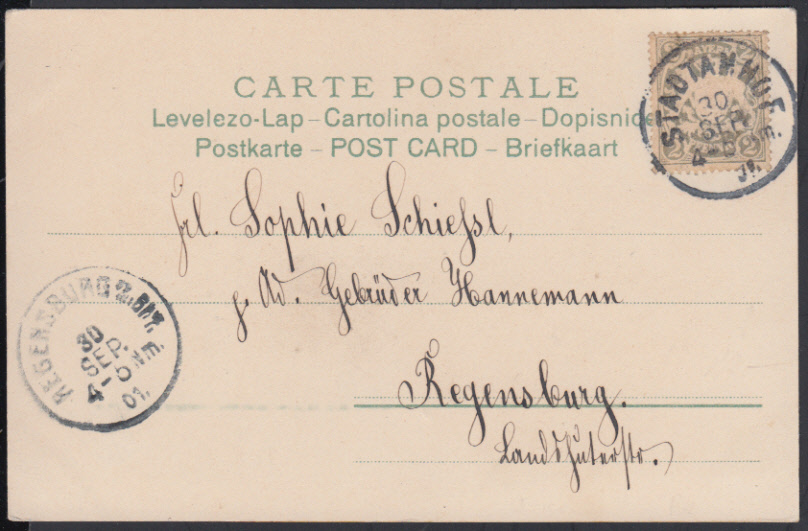 CARTE POSTALE
Levelezo-Lap – Cartolina postale – Dopisnice
Postkarte – POST CARD – Briefkaart
STADTAMHOF
30
SEP.
4-5 Nm.
01.
2 2
Frl. Sophie Schießl,
p. Ad. Gebrüder Hannemann
Regensburg.
Landshuterstr.
REGENSBURG 2. BHF.
30
SEP.
4-5 N M.
01.